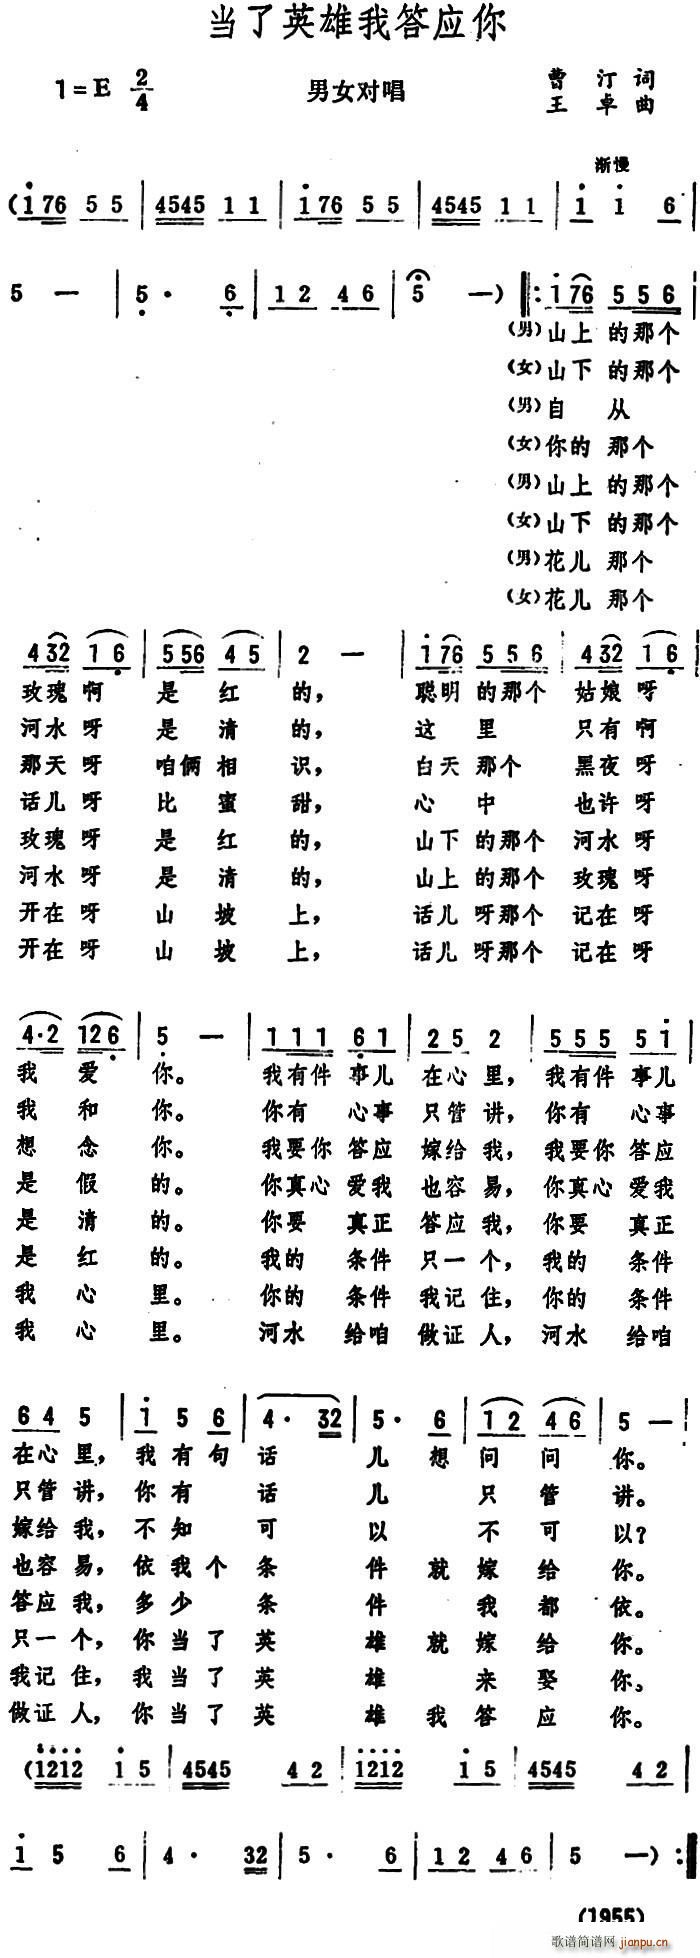 当了英雄我答应你
1=E 2/4
男女对唱
曹汀 词
王卓 曲
渐慢
(176 55 | 4545 11 | 176 55 | 4545 11 | 1 1 6 |
5 — | 5· 6 | 12 46 | 5 —) ‖: 176 556 |
(男)山上 的那个
(女)山下 的那个
(男)自 从
(女)你的 那个
(男)山上 的那个
(女)山下 的那个
(男)花儿 那个
(女)花儿 那个
432 16 | 556 45 | 2 — | 176 556 | 432 16 |
玫瑰啊 是红的, 聪明的那个 姑娘呀
河水呀 是清的, 这里 只有啊
那天呀 咱俩相识, 白天那个 黑夜呀
话儿呀 比蜜甜, 心中 也许呀
玫瑰呀 是红的, 山下的那个 河水呀
河水呀 是清的, 山上的那个 玫瑰呀
开在呀 山坡上, 话儿呀那个 记在呀
开在呀 山坡上, 话儿呀那个 记在呀
4·2 126 | 5 — | 111 61 | 25 2 | 555 51 |
我爱你。 我有件事儿 在心里, 我有件事儿
我和你。 你有心事 只管讲, 你有心事
想念你。 我要你答应 嫁给我, 我要你答应
是假的。 你真心爱我 也容易, 你真心爱我
是清的。 你要真正 答应我, 你要真正
是红的。 我的条件 只一个, 我的条件
我心里。 你的条件 我记住, 你的条件
我心里。 河水给咱 做证人, 河水给咱
64 5 | 1 5 6 | 4· 32 | 5· 6 | 12 46 | 5 — |
在心里, 我有句话儿想问问你。
只管讲, 你有话儿只管讲。
嫁给我, 不知可以不可以?
也容易, 依我个条件就嫁给你。
答应我, 多少条件我都依。
只一个, 你当了英雄就嫁给你。
我记住, 我当了英雄来娶你。
做证人, 你当了英雄我答应你。
(1212 15 | 4545 42 | 1212 15 | 4545 42 |
1 5 6 | 4· 32 | 5· 6 | 12 46 | 5 —) :‖
(1955)
歌谱简谱网 jianpu.cn